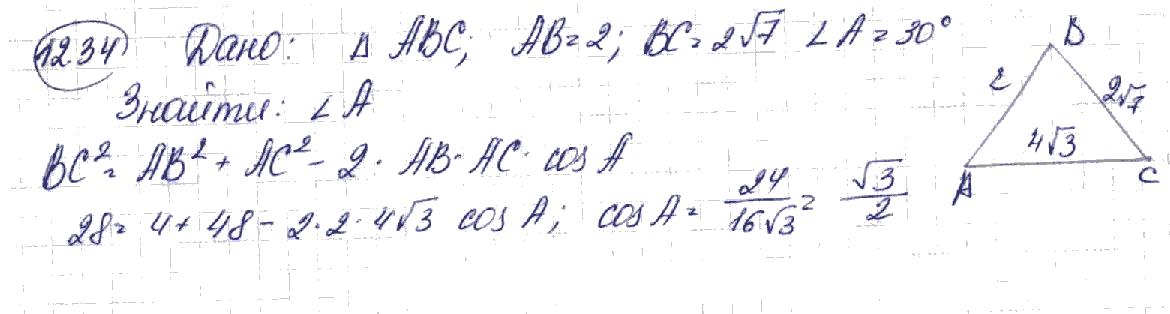 1234 Дано: Δ ABC, AB = 2; BC = 2√7 ∠A = 30°
Знайти: ∠A
BC² = AB² + AC² - 2 · AB · AC · cos A
28 = 4 + 48 - 2 · 2 · 4√3 cos A; cos A = 24/16√3 = √3/2
B
2
2√7
4√3
A
C